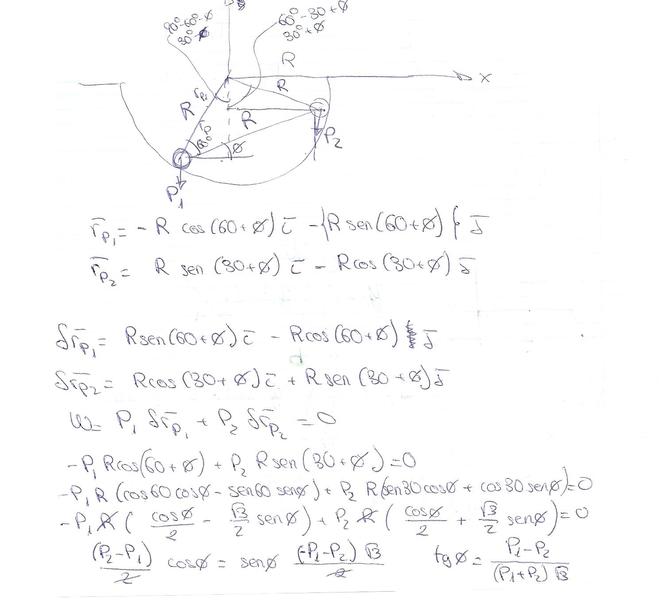 90°-60°-ø
30°-ø
60°-30+ø
30°+ø
R
R
x
R
r̄P₁
R
60°
ø
P₂
P₁
r̄P₁ = - R cos (60+ø) ī - {R sen (60+ø)} j̄
r̄P₂ = R sen (30+ø) ī - R cos (30+ø) j̄
δr̄P₁ = R sen (60+ø) ī - R cos (60+ø) j̄
δr̄P₂ = R cos (30+ø) ī + R sen (30+ø) j̄
W= P₁ δr̄P₁ + P₂ δr̄P₂ = 0
-P₁ R cos (60+ø) + P₂ R sen (30+ø) = 0
-P₁ R (cos 60 cos ø - sen 60 sen ø) + P₂ R (sen 30 cos ø + cos 30 sen ø) = 0
-P₁ R ( cos ø / 2 - √3 / 2 sen ø ) + P₂ R ( cos ø / 2 + √3 / 2 sen ø ) = 0
(P₂-P₁) / 2 cos ø = sen ø (-P₁-P₂) √3 / 2 tg ø = P₁-P₂ / (P₁+P₂) √3